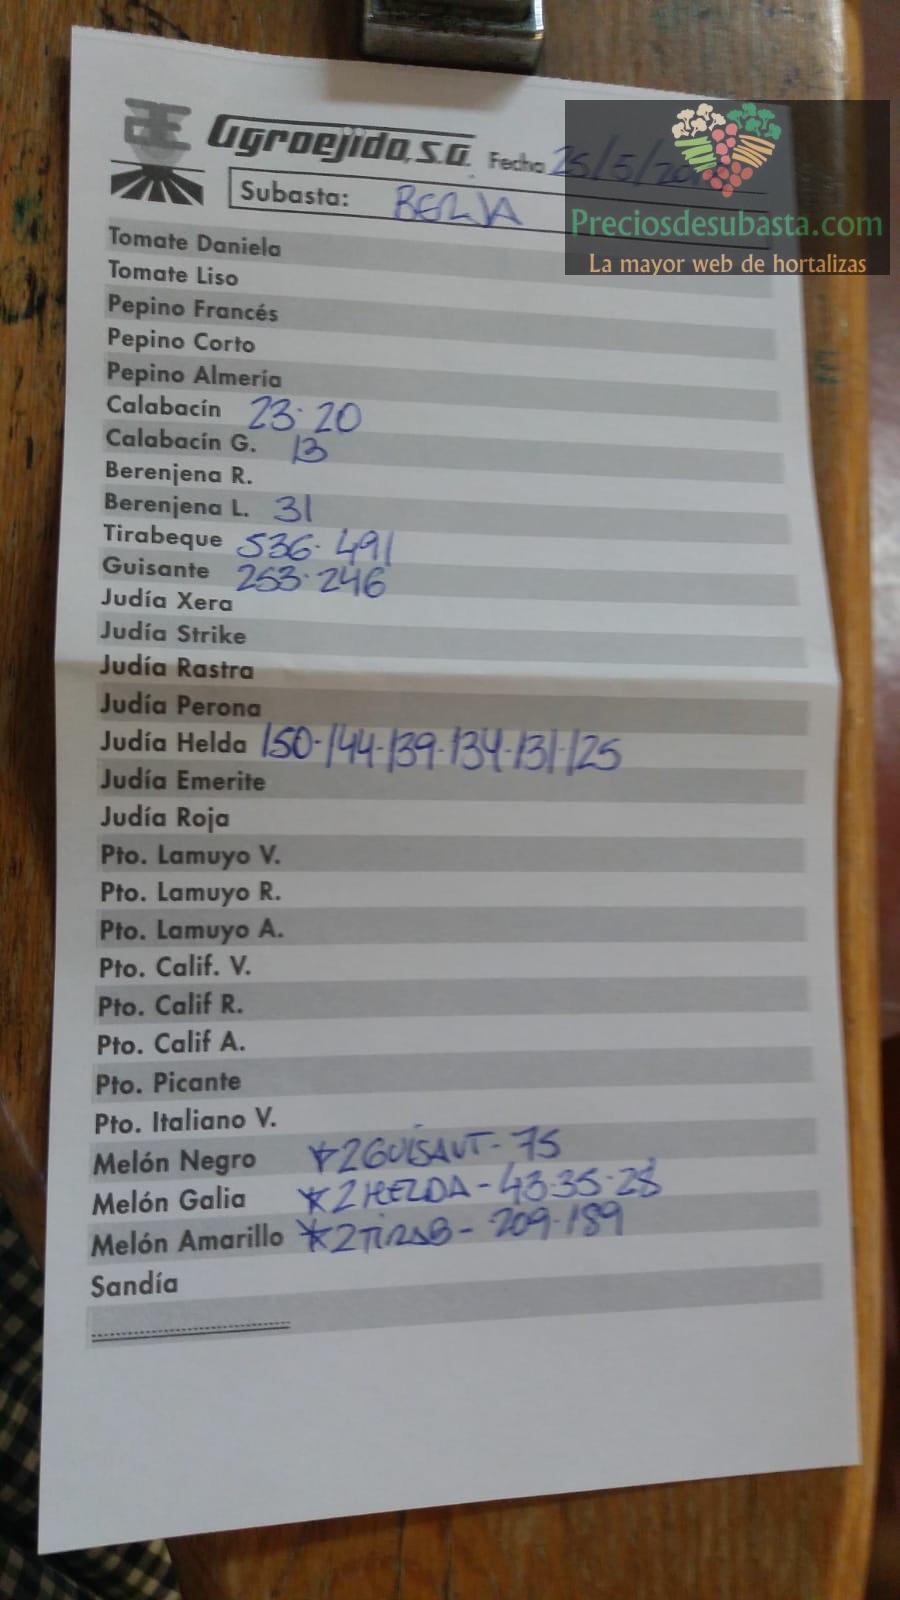 Agroejido, S.A. Fecha 25/5/20
Preciosdesubasta.com
La mayor web de hortalizas
Subasta: BERJA
Tomate Daniela
Tomate Liso
Pepino Francés
Pepino Corto
Pepino Almería
Calabacín 23-20
Calabacín G. 13
Berenjena R.
Berenjena L. 31
Tirabeque 536-491
Guisante 253-246
Judía Xera
Judía Strike
Judía Rastra
Judía Perona
Judía Helda 150-144-139-134-131-125
Judía Emerite
Judía Roja
Pto. Lamuyo V.
Pto. Lamuyo R.
Pto. Lamuyo A.
Pto. Calif. V.
Pto. Calif R.
Pto. Calif A.
Pto. Picante
Pto. Italiano V.
Melón Negro *2GUISANT-75
Melón Galia *2HELDA-43-35-28
Melón Amarillo *2TIRAB-209-189
Sandía